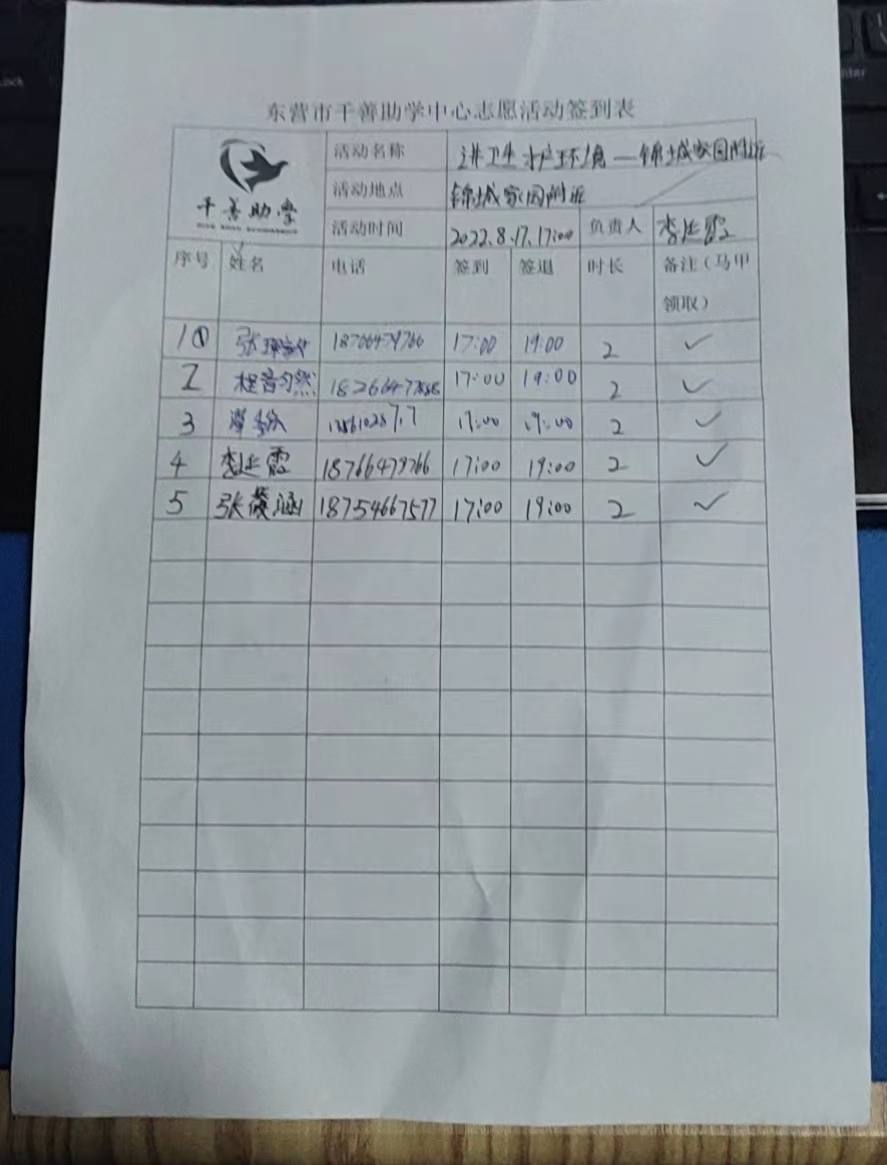 东营市千善助学中心志愿活动签到表
千善助学
活动名称 讲卫生 护环境—锦城家园附近
活动地点 锦城家园附近
活动时间 2022.8.17.17:00 负责人 李延霞
序号 姓名 电话 签到 签退 时长 备注（马甲领取）
1① 张 17:00 19:00 2 ✓
2 程音匀然 17:00 19:00 2 ✓
3 17:00 19:00 2 ✓
4 李延霞 18766479766 17:00 19:00 2 ✓
5 张薇涵 18754667577 17:00 19:00 2 ✓